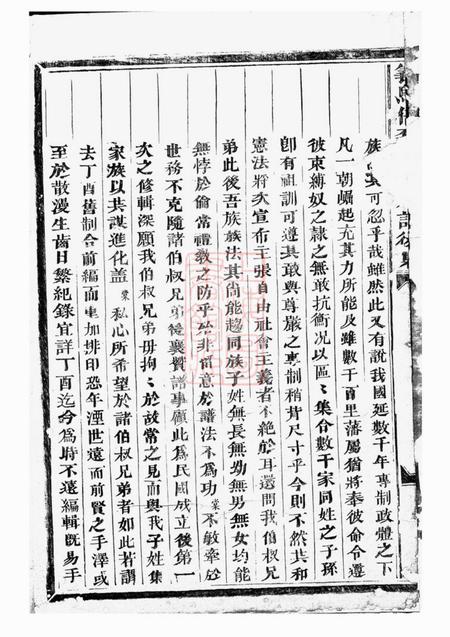 族可忽乎哉雖然此又有說我國延數千年專制政體之下
凡一朝崛起充其力所能及雖數千百里藩屬猶將奉彼命令遵
彼束縛奴之隸之無敢抗衡况以區〻集合數千家同姓之子孫
卽有祖訓可遵其敢與尊嚴之專制稍背尺寸乎今則不然共和
憲法將次宣布主張自由社會主義者不絶於耳還問我伯叔兄
弟此後吾族族法其尚能趨同族子姓無長無幼無男無女均能
無悖於倫常禮教之防乎殆非留意於譜法不爲功 業 不敏牽於
世務不克隨諸伯叔兄弟後襄贊譜事顧此爲民國成立後第一
次之修輯深願我伯叔兄弟毋拘〻於故常之見而與我子姓集
家族以共謀進化盖 業 私心所希望於諸伯叔兄弟者如此若謂
去丁酉舊制合前編而重加排印恐年湮世遠而前賢之手澤或
至於散漫生齒日繁紀錄宜詳丁酉迄今爲時不遠編輯旣易手